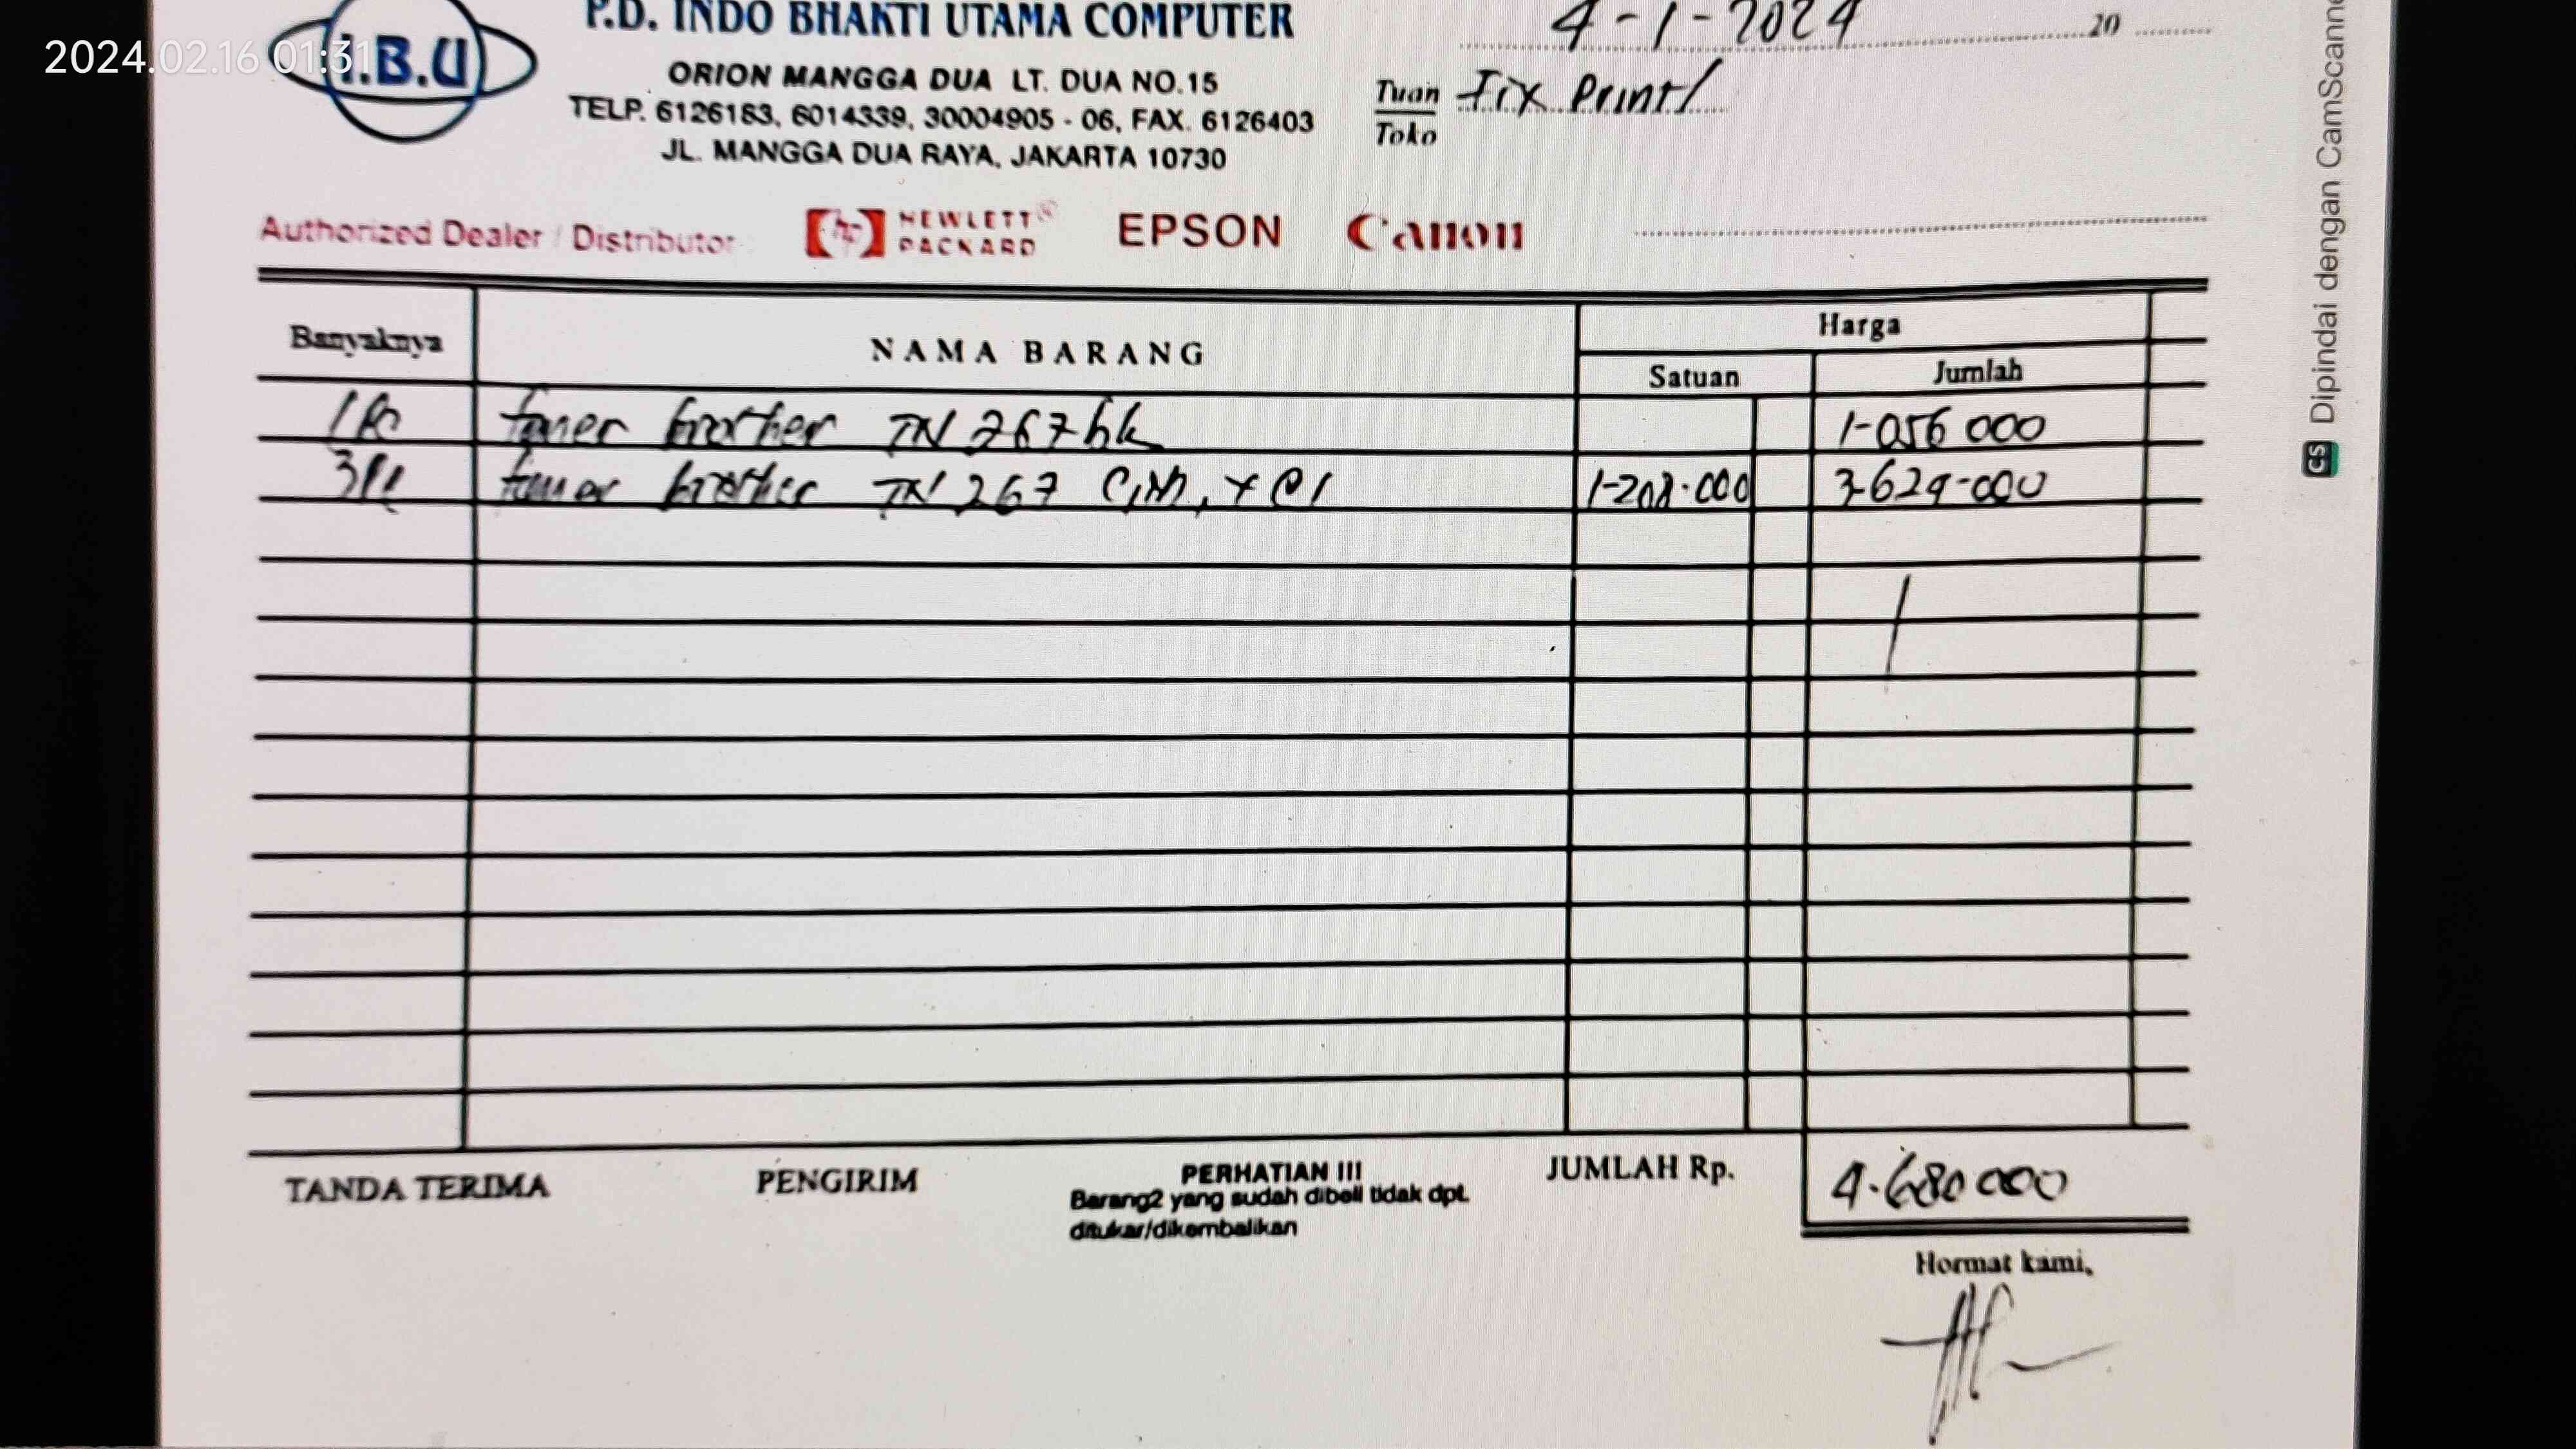 2024.02.16 01:31
I.B.U
P.D. INDO BHAKTI UTAMA COMPUTER
ORION MANGGA DUA LT. DUA NO.15
TELP. 6126183, 6014339, 30004905 - 06, FAX. 6126403
JL. MANGGA DUA RAYA, JAKARTA 10730
4-1-2024 20
Tuan Fix Print
Toko
Authorized Dealer / Distributor hp HEWLETT® PACKARD EPSON Canon
Banyaknya NAMA BARANG Harga
Satuan Jumlah
toner brother TN 267 bk 1-056 000
toner brother TN 267 1-208.000 3-624-000
TANDA TERIMA PENGIRIM PERHATIAN !!! JUMLAH Rp. 4.680 000
Barang2 yang sudah dibeli tidak dpt.
ditukar/dikembalikan
Hormat kami,
CS Dipindai dengan CamScanne